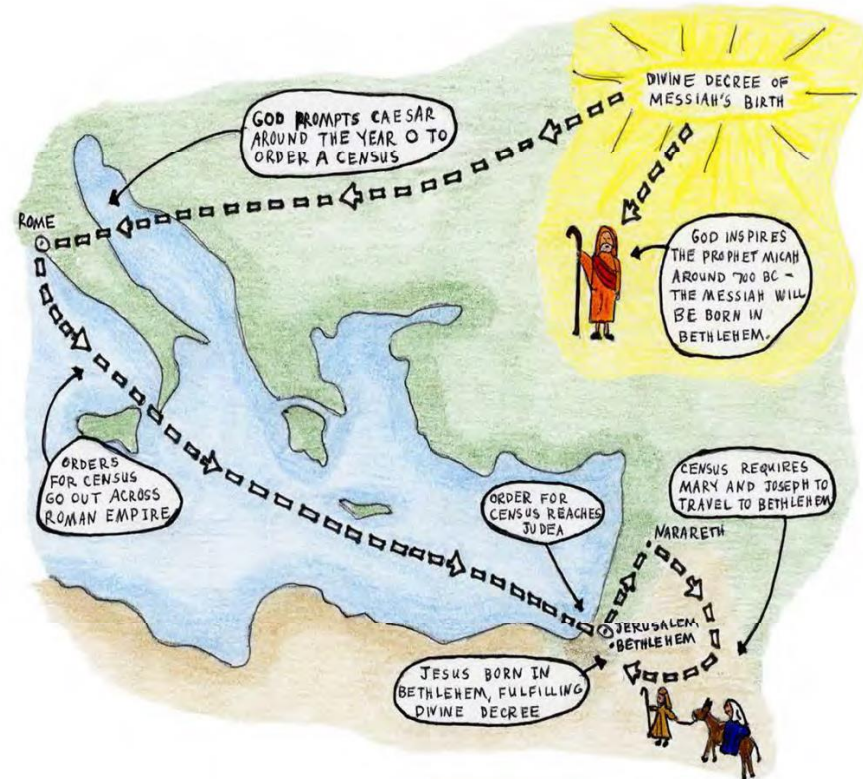 DIVINE DECREE OF
MESSIAH'S BIRTH
GOD PROMPTS CAESAR
AROUND THE YEAR 0 TO
ORDER A CENSUS
ROME
GOD INSPIRES
THE PROPHET MICAH
AROUND 700 BC -
THE MESSIAH WILL
BE BORN IN
BETHLEHEM.
ORDERS
FOR CENSUS
GO OUT ACROSS
ROMAN EMPIRE
ORDER FOR
CENSUS REACHES
JUDEA
CENSUS REQUIRES
MARY AND JOSEPH TO
TRAVEL TO BETHLEHEM
NARARETH
JERUSALEM,
BETHLEHEM
JESUS BORN IN
BETHLEHEM, FULFILLING
DIVINE DECREE